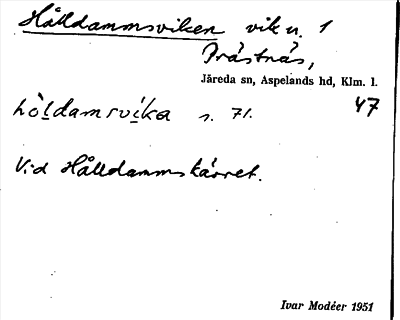 Hålldammsviken vik u. 1
Prästnäs,
Järeda sn, Aspelands hd, Klm. l.
47
hòl̀damsvìka s. 71.
Vid Hålldammskärret.
Ivar Modéer 1951